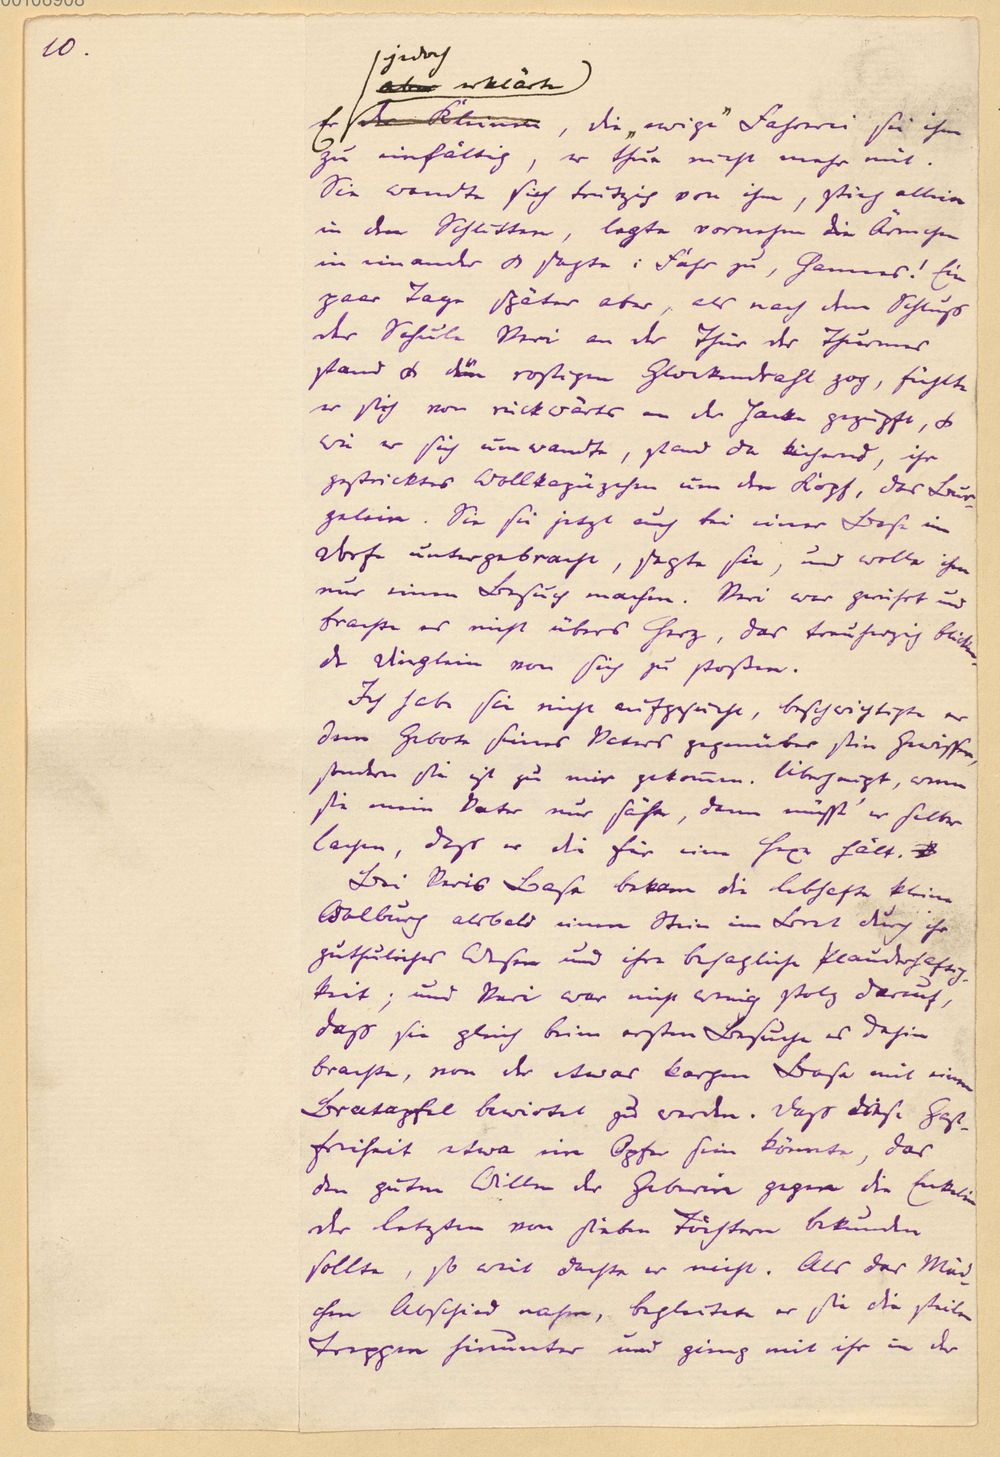 00106908
10.
jedoch
aber erklärte
Er der Kleinen, die „ewige" Fahrerei sei ihm
zu einfältig, er thue nicht mehr mit.
Sie wandte sich trutzig von ihm, stieg allein
in den Schlitten, legte vornehm die Ärmchen
in einander & sagte: Fahr zu, Hannes! Ein
paar Tage später aber, als nach dem Schluss
der Schule Veri an der Thür des Thurmes
stand & den rostigen Glockendraht zog, fühlte
er sich von rückwärts an der Jacke gezupft, &
wie er sich umwandte, stand da kichernd, ihr
gestricktes Wollkapüzchen um den Kopf, das Bur-
gelein. Sie sei jetzt auch bei einer Base im
Dorfe untergebracht, sagte sie, und wolle ihm
nur einen Besuch machen. Veri war gerührt und
brachte es nicht übers Herz, das treuherzig blicken-
de Dinglein von sich zu stoßen.
Ich habe sie nicht aufgesucht, beschwichtigte er
dem Gebote seines Vaters gegenüber sein Gewissen,
sondern sie ist zu mir gekommen. Überhaupt, wenn
sie mein Vater nur sähe, dann müsst' er selber
lachen, dass er die für eine Hexe hält.
Bei Veris Base bekam die lebhafte kleine
Walburg alsbald einen Stein im Brett durch ihr
zuthuliches Wesen und ihre behagliche Plauderhaftig-
keit; und Veri war nicht wenig stolz darauf,
dass sie gleich beim ersten Besuche es dahin
brachte, von der etwas kargen Base mit einem
Bratapfel bewirtet zu werden. Dass diese Gast-
freiheit etwa ein Opfer sein könnte, das
den guten Willen der Geberin gegen die Enkelin
der letzten von sieben Töchtern bekunden
sollte, so weit dachte er nicht. Als das Mäd-
chen Abschied nahm, begleitete er sie die steilen
Treppen hinunter und gieng mit ihr in der